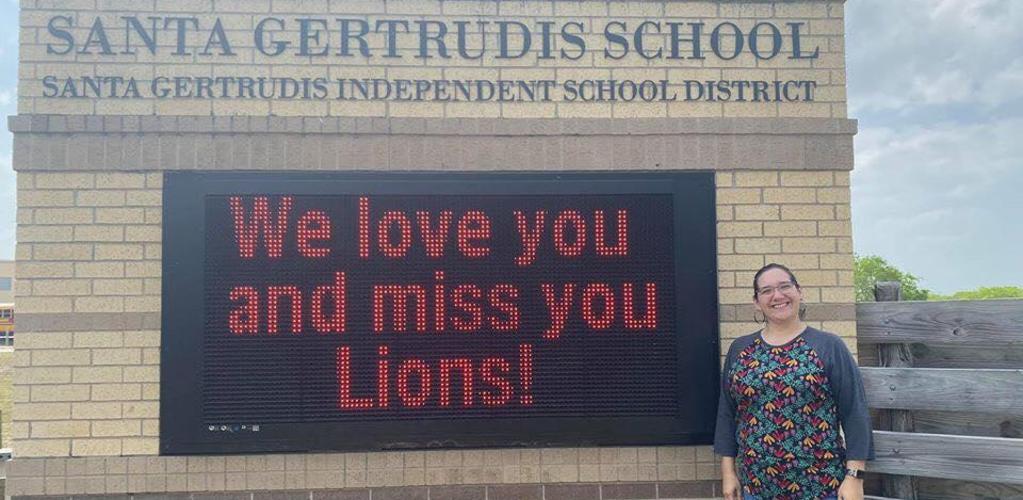 SANTA GERTRUDIS SCHOOL
SANTA GERTRUDIS INDEPENDENT SCHOOL DISTRICT
We love you
and miss you
Lions!